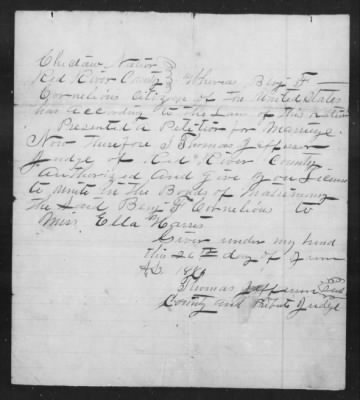 Choctaw Nation
Red River County Whereas Benj F
Cornelious Citizen of the United States
has according to the Law of this Nation
Presented a Petition for Marriage
Now therefore I Thomas Jefferson
Judge of Red River County
authorized and give you License
to unite in the Bonds of Matrimony
the Said Benj F Cornelious to
Miss Ella Harris
Given under my hand
this 26th day of June
AD
Thomas Jefferson Seal
County and Probate Judge